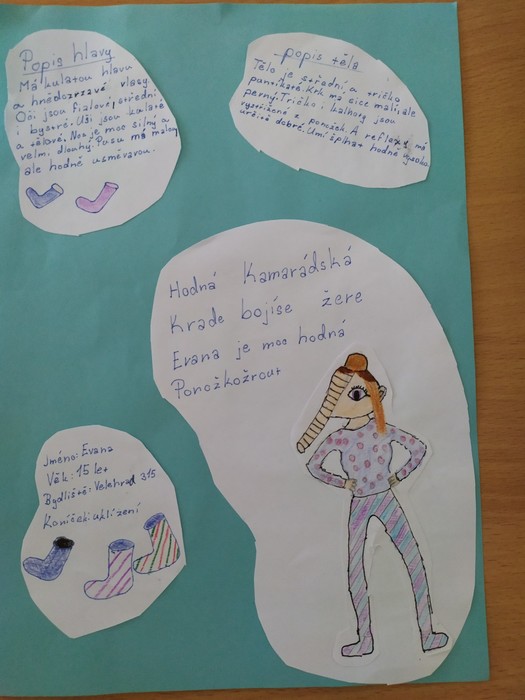 Popis hlavy
Má kulatou hlavu
a hnědozrzavé vlasy.
Oči jsou fialové, střední
i bystré. Uši jsou kulaté
a tělavé. Nos je moc silný a
velm. dlouhý. Pusu má malou,
ale hodně usměvavou.
popis těla
Tělo je střední, a tričko
puntíkaté. Krk má sice malí, ale
pevný. Tričko i kalhoty jsou
vyrobené z ponožek. A reflexy má
určitě dobré. Umí šplhat hodně vysoko.
Hodná Kamarádská
Krade bojíse žere
Evana je moc hodná
Ponožkožrout
Jméno: Evana
Věk: 15 let
Bydliště: Velehrad 315
Koníček: uklízení